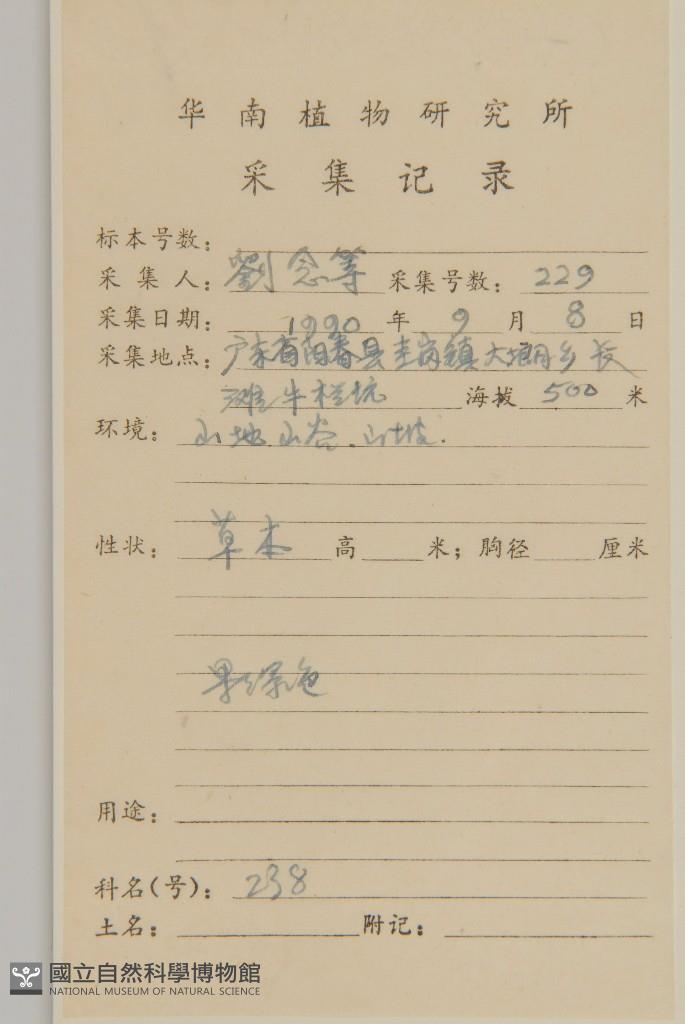 华南植物研究所
采集记录
标本号数：
采集人：劉念等 采集号数：229
采集日期：1990年9月8日
采集地点：广东省阳春县圭岗镇大塱乡长
滩牛栏坑 海拔500米
环境：山地山谷.山坡.
性状：草本 高 米；胸径 厘米
果绿色
用途：
科名(号)：238
土名： 附记：
國立自然科學博物館
NATIONAL MUSEUM OF NATURAL SCIENCE